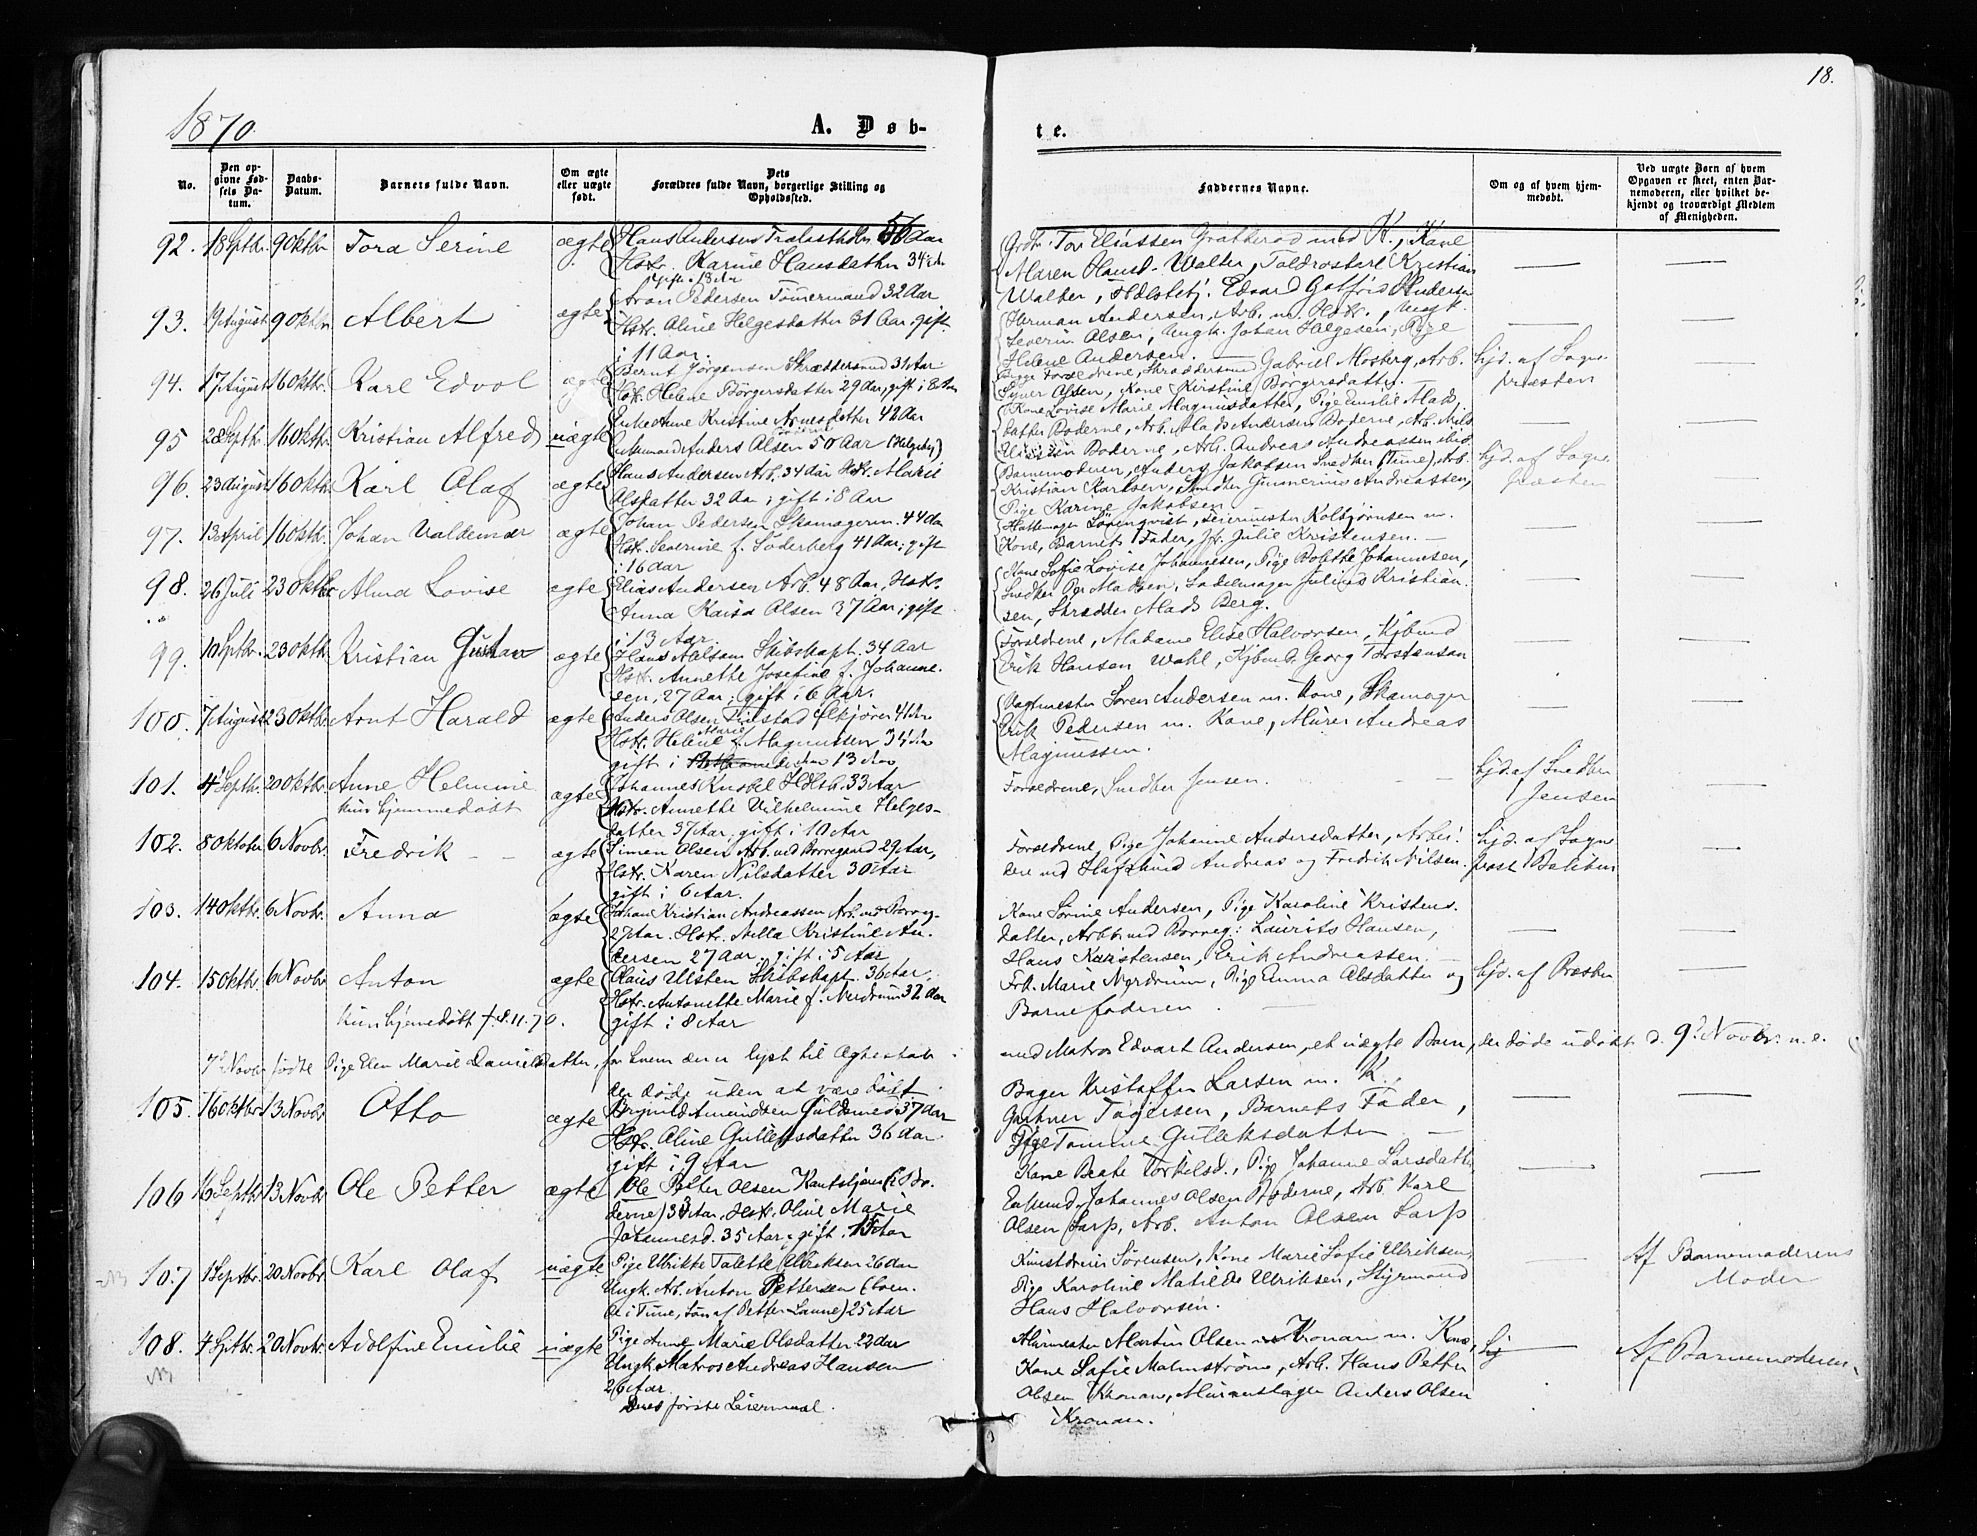 18.
1870
A. Døb-
te.
No.
Den op-
givne Fød-
sels Da-
tum.
Daabs-
Datum.
Barnets fulde Navn.
Om ægte
eller uægte
født.
Dets
Forældres fulde Navn, borgerlige Stilling og
Opholdssted.
Faddernes Navne.
Om og af hvem hjem-
medøbt.
Ved uægte Børn af hvem
Opgaven er skeet, enten Bar-
nemoderen, eller hvilket be-
kjendt og troværdigt Medlem
af Menigheden.
92. 18 Septbr. 9 Oktbr. Tora Serine ægte Hans Andersen 56 Aar
Hstr. Karine Hansdatter 34 Aar
gift i 13 Aar
Grdbr. Tor Eliassen med K., Kone
Maren Hansd. Walter, Toldrosbetj. Kristian
Walter, Edvard Gotfrid Andersen
93. August 9 Oktbr. Albert ægte Aron Pedersen Tømermand 32 Aar
Hstr. Aline Helgesdatter 31 Aar, gift
i 11 Aar.
Herman Andersen, Arb. m. Hstr., Ungk.
Severin Olsen, Ungk. Johan Helgesen, Pige
Helene Andersen.
94. 17 August 16 Oktbr. Karl Edvol ægte Bernt Jørgensen Skræddersvend 31 Aar
Hstr. Helene Børgersdatter 29 Aar, gift i 8 Aar
Forældrene, Skræddersvend Gabriel Mosberg, Arb.
Syver Olsen, Kone Kirstine Borgersdatter.
hjd. af Sogne-
præsten
95 28 Septbr. 16 Oktbr. Kristian Alfred uægte Enke Anne Kristine Arnesdatter 42 Aar
Enkemand Anders Olsen 50 Aar (Helgeby)
Kone Lovise Marie Magnusdatter, Pige Emilie Mads-
datter Boderne, Arb. Mads Andersen Boderne, Arb. Nils
Boderne, Arb. Andreas Andreassen
96. 23 August 16 Oktbr. Karl Olaf ægte Hans Andersen Arb. 34 Aar Hstr. Marie
Olsdatter 32 Aar, gift i 8 Aar
Barnemoderen, Anders Jakobsen Snedker (Tune), Arb.
Kristian Karlsen, Snedker Gunnerius Andreassen,
Pige Karine Jakobsen
hjd. af Sogne-
præsten
97. 13 April 16 Oktbr. Johan Valdemar ægte Johan Pedersen Skomagerm. 44 Aar
Hstr. Severine f. Söderberg 41 Aar; gift
i 16 Aar
Hattemager Löfenqvist, Feiermester Kolbjørnsen m.
Kone, Barnets Fader, Jfr. Julie Kristensen.
98. 26 Juli 23 Oktbr. Alma Lovise ægte Elias Andersen Arb. 48 Aar, Hstr.
Anna Kaisa Olsen 37 Aar; gift
i 13 Aar.
Kone Sofie Lovise Johannesen, Pige Bolette Johannesen,
Snedker Per Madsen, Sadelmager Julius Kristian-
sen, Skrædder Mads Berg.
99. 10 Septbr. 23 Oktbr. Kristian Gustav ægte Hans Nilsson Skibskapt. 34 Aar
Hstr. Annette Josefine f. Johanne-
sen, 27 Aar, gift i 6 Aar.
Forældrene, Madame Elise Halvorsen, Kjbmd
Erik Hansen Wahl, Kjbmd. Georg Torstensen
100. 7 August 23 Oktbr. Arnt Harald ægte Anders Olsen Fristad Ølkjører 41 Aar
Hstr. Helene Marie f. Magnussen 34 Aar
gift i 13 Aar
Vagtmester Søren Andersen m. Kone, Skomager
Erik Pedersen m. Kone, Murer Andreas
Magnussen.
101. 4 Septbr. 20 Oktbr. Anne Helmine
kun hjemmedøbt ægte Johannes Knobel 33 Aar
Hstr. Annethe Vilhelmine Helges-
datter 37 Aar; gift i 10 Aar
Forældrene, Snedker Jensen.
hjd. af Snedker
Jensen
102. 8 Oktober 6 Novbr. Fredrik ægte Simen Olsen Arb. ved Borregaard 29 Aar,
Hstr. Karen Nilsdatter 30 Aar
gift i 6 Aar.
Forældrene, Pige Johanne Andersdatter, Arbei-
dere ved Hafslund Andreas og Fredrik Nilsen.
hjd. af Sogne-
præst
103. 14 Oktbr. 6 Novbr. Anna ægte Johan Kristian Andreassen Arb. ved Borreg.
27 Aar. Hstr. Nella Kristine An-
dersen 27 Aar, gift i 5 Aar
Kone Sørine Andersen, Pige Karoline Kristens-
datter, Arbb. ved Borreg: Laurits Hansen,
Hans Karstensen, Erik Andreassen.
104. 15 Oktbr. 6 Novbr. Anton
kun hjemedøbt f. 8.11.70. ægte Claus Ulsten Skibskapt. 36 Aar,
Hstr. Antonette Marie f. Nerdrum 32 Aar
gift i 8 Aar
Frk. Marie Nerdrum, Pige Emma Olsdatter og
Barnefaderen.
hjd. af Præsten
7de Novbr. fødte Pige Elen Marie Danielsdatter, for hvem der er lyst til Ægteskab
med Matros Edvart Andersen, et uægte Barn, der døde udøbt d. 9de Novbr. n.e.
der døde uden at være døbt
105. 16 Oktbr. 13 Novbr. Otto ægte Amundsen Guldsmed 37 Aar
Hstr. Aline Gulleksdatter 36 Aar
gift i 9 Aar
Bager Kristoffer Larsen m. K.,
Gartner Tøgersen, Barnets Fader,
Pige Tomine Guleksdatter
106 16 Septbr 13 Novbr Ole Petter ægte Ole Petter Olsen (i Bo-
derne) 33 Aar, Hstr. Oline Marie
Johannesd. 35 Aar, gift i 15 Aar
Kone Beate Torkelsd., Pige Johanne Larsdatter
Enkemd. Johannes Olsen Boderne, Arb. Karl
Olsen Sarp, Arb. Anton Olsen Sarp
107 1 Septbr. 20 Novbr. Karl Olaf uægte Pige Ulrikke Talette Ulriksen 26 Aar
Ungk. Arb. Anton Pettersen
i Tune, Søn af Petter 25 Aar
Kunstdreier Sørensen, Kone Marie Sofie Ulriksen,
Pige Karoline Matilde Ulriksen, Styrmand
Hans Halvorsen.
Af Barnemoderens
Moder
108. 4 Septbr. 20 Novbr. Adolfine Emilie uægte Pige Anne Marie Olsdatter 22 Aar
Ungk. Matros Andreas Hansen
26 Aar.
Deres første Leiermaal.
Murmester Martin Olsen Kronan m. Kone,
Kone Sofie Malmstrøm, Arb. Hans Petter
Olsen Kronan, Anders Olsen
Kronan.
Af Barnemoderen.